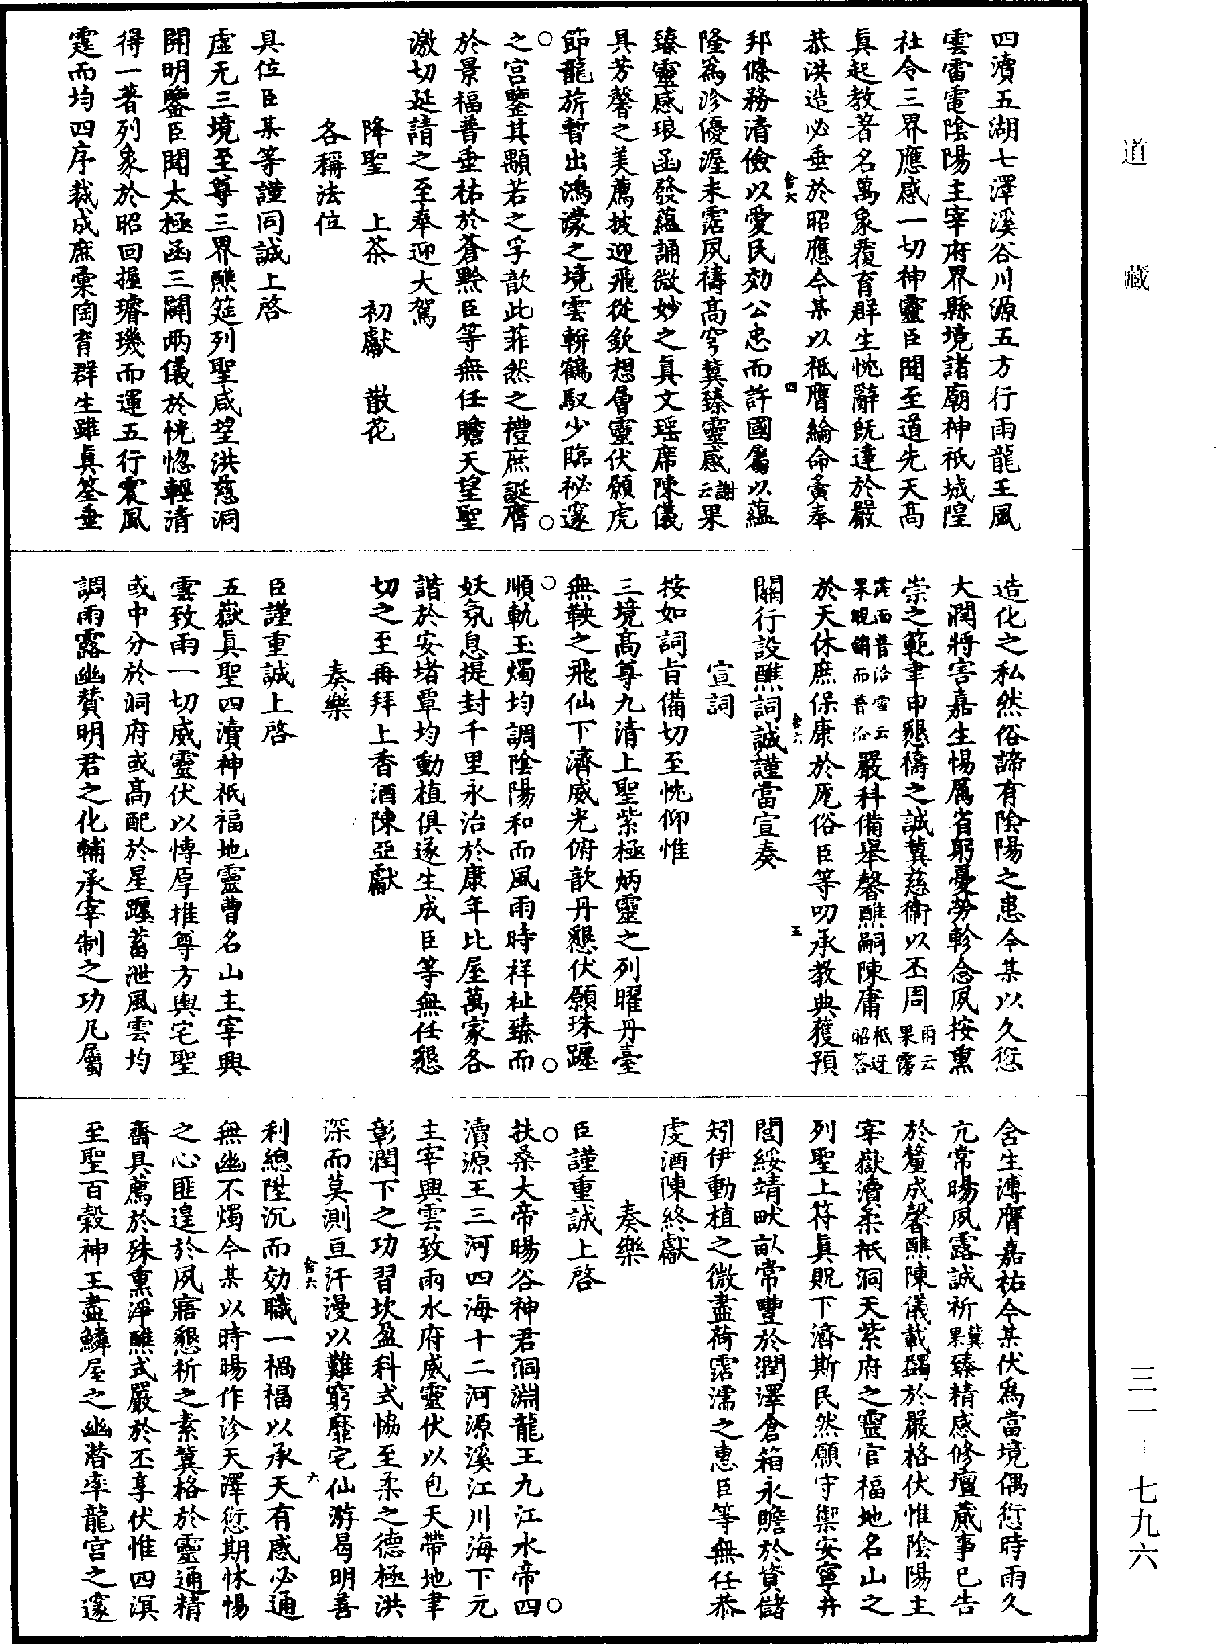 道藏
三一—七九六
四瀆五湖七澤溪谷川源五方行雨龍王風
雲雷電陰陽主宰府界縣境諸廟神祇城隍
社令三界應感一切神靈臣聞至道先天高
真起教著名萬象覆育群生忱辭既達於嚴
恭洪造必垂於昭應今某以祗膺綸命叅奉
舍六 四
邦條務清儉以愛民効公忠而許國屬以蘊
隆為沴優渥未霑夙禱高穹冀臻靈感謝云果
臻靈感琅函發蘊誦微妙之真文瑶席陳儀
具芳馨之美薦披迎飛從欽想層靈伏願虎
節龍旂暫出鴻濛之境雲軿鶴馭少臨祕邃
之宫鑒其顒若之孚歆此菲然之禮庶誕膺
於景福普垂祐於蒼黔臣等無任瞻天望聖
激切延請之至奉迎大駕
降聖 上茶 初獻 散花
各稱法位
具位臣某等謹同誠上啓
虛无三境至尊三界醮筵列聖咸望洪慈洞
開明鑒臣聞太極函三闢兩儀於恍惚輕清
得一著列象於昭回握璿璣而運五行震風
霆而均四序裁成庶彙陶育群生雖真筌垂
造化之私然俗諦有陰陽之患今某以久愆
大潤將害嘉生惕厲省躬憂勞軫念夙按熏
崇之範聿申懇禱之誠冀慈衞以丕周雨云果霶
霈而普洽雪云果晛消而普洽嚴科備舉馨醮嗣陳庸祗迓昭荅
於天休庶保康於厖俗臣等叨承教典獲預
舍六 五
關行設醮詞誠謹當宣奏
宣詞
按如詞旨備切至忱仰惟
三境高尊九清上聖紫極炳靈之列曜丹臺
無鞅之飛仙下濟威光俯歆丹懇伏願珠躔
順軌玉燭均調陰陽和而風雨時祥祉臻而
妖氛息提封千里永治於康年比屋萬家各
諧於安堵覃均動植俱遂生成臣等無任懇
切之至再拜上香酒陳亞獻
奏樂
臣謹重誠上啓
五嶽真聖四瀆神祇福地靈曹名山主宰興
雲致雨一切威靈伏以博厚推尊方輿宅聖
或中分於洞府或高配於星躔蓄泄風雲均
調雨露幽贊明君之化輔承宰制之功凡屬
含生溥膺嘉祐今某伏為當境偶愆時雨久
亢常暘夙露誠祈冀果臻精感修壇蕆事已告
於釐成馨醮陳儀載蠲於嚴格伏惟陰陽主
宰嶽瀆柔祇洞天紫府之靈官福地名山之
列聖上符真貺下濟斯民然願守禦安寧井
閭綏靖畎畝常豐於潤澤倉箱永贍於貲儲
矧伊動植之微盡荷霑濡之惠臣等無任恭
虔酒陳終獻
奏樂
臣謹重誠上啓
扶桑大帝暘谷神君洞淵龍王九江水帝四
瀆源王三河四海十二河源溪江川海下元
主宰興雲致雨水府威靈伏以包天帶地聿
彰潤下之功習坎盈科式恊至柔之德極洪
深而莫測亘汗漫以難窮靡宅仙游曷明善
舍六 六
利總陞沉而効職一禍福以承天有感必通
無幽不燭今某以時暘作沴天澤愆期怵惕
之心匪遑於夙寤懇祈之素冀格於靈通精
齋具薦於殊熏淨醮式嚴於丕享伏惟四溟
至聖百穀神王盡鱗屋之幽潛率龍宫之邃